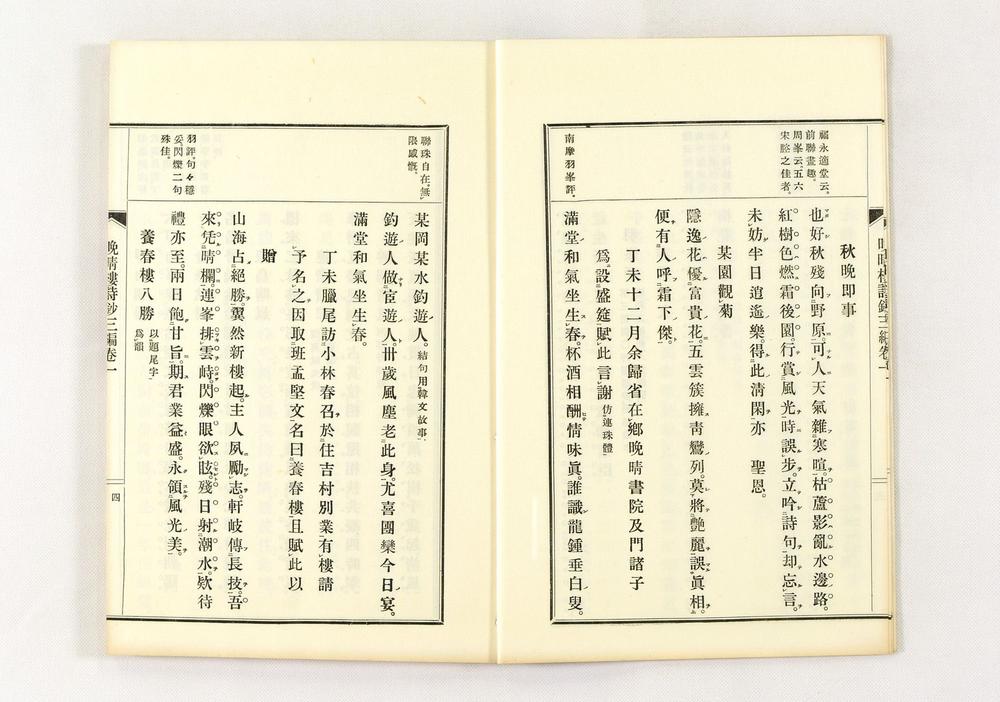 福永適堂云。
前聯畫趣。
周峯云。五六
宋謐之佳者。
秋晩即事
也好秋殘向野原。可人天氣雜寒暄。枯蘆影亂水邊路。
紅樹色燃霜後園。行賞風光時誤步。立吟詩句却忘言。
未妨半日逍遙樂。得此清閑亦 聖恩。
某園觀菊
隱逸花優富貴花。五雲簇擁青鸞列。莫將艶麗誤眞相。
便有人呼霜下傑。
丁未十二月余歸省在鄕晩晴書院及門諸子
爲設盛筵賦此言謝 仿連珠體
南摩羽峯評。
滿堂和氣坐生春。杯酒相酬情味眞。誰識龍鍾垂白叟。
聯珠自在。無
限感慨。
某岡某水釣遊人。結句用韓文故事。
釣遊人做宦遊人。卅歲風塵老此身。尤喜團欒今日宴。
滿堂和氣坐生春。
丁未臘尾訪小林春召於住吉村別業有樓請
予名之因取班孟堅文名曰養春樓且賦此以
贈
山海占絕勝。翼然新樓起。主人夙勵志。軒岐傳長技。吾
羽評。句々穩
妥閃爍二句
殊佳。
來凭晴欄。連峯排雲峙。閃爍眼欲眩。殘日射潮水。欵待
禮亦至。兩日飽甘旨。期君業益盛。永領風光美。
養春樓八勝 以題尾字
爲韻
晩晴樓詩鈔三編卷一
四